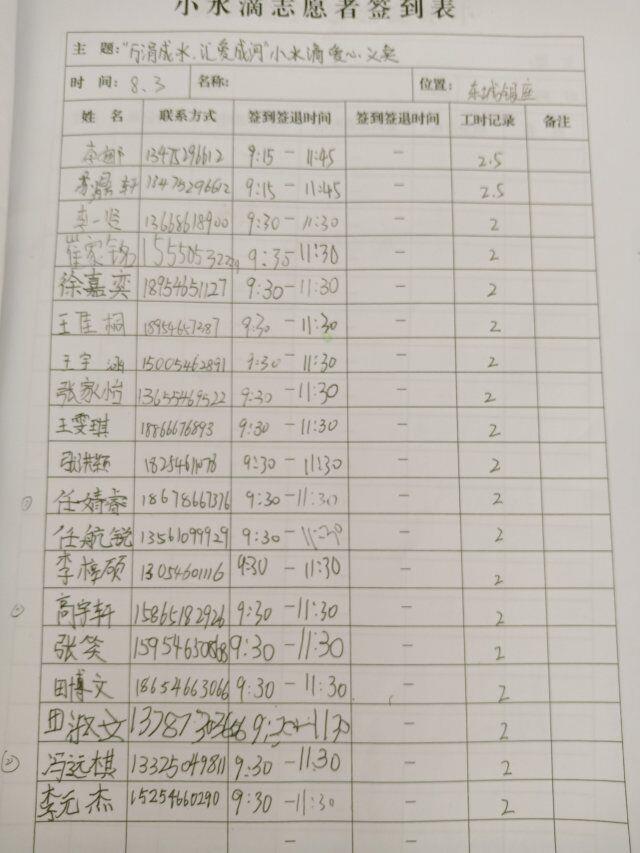 小水滴志愿者签到表
主 题: "行涓成水,汇爱成河" 小水滴爱心义卖
时 间: 8.3 名称: 位置: 东城银座
姓 名 联系方式 签到签退时间 签到签退时间 工时记录 备注
13475296612 9:15 - 11:45 - 2.5
轩 13475296612 9:15 - 11:45 - 2.5
13668618900 9:30 - 11:30 - 2
崔家铭 9:30 11:30 - 2
徐嘉奕 18954651127 9:30 - 11:30 - 2
王佳桐 18954657287 9:30 - 11:30 - 2
王宇涵 15005462891 9:30 - 11:30 - 2
张家怡 13655469522 9:30 - 11:30 - 2
王雯琪 18866676893 9:30 - 11:30 - 2
张洪颖 9:30 - 11:30 - 2
① 任婧睿 18678667376 9:30 - 11:30 - 2
任航锐 13561099929 9:30 - - 2
李梓硕 13054601116 9:30 - 11:30 - 2
高宇轩 15865182926 9:30 - 11:30 - 2
张笑 9:30 - 11:30 - 2
田博文 18654663066 9:30 - 11:30 - 2
田淑文 11:30 - 2
② 冯远棋 13325049811 9:30 - 11:30 - 2
李元杰 15254660290 9:30 - 11:30 - 2
- -